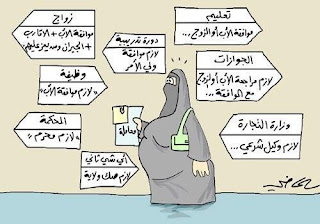 تعليم
موافقة الأب أو الزوج...
الجوازات
لازم مراجعة الأب أو الزوج
مع الموافقة...
وزارة التجارة
لازم وكيل شرعي...
دورة تدريبية
لازم موافقة
ولي الأمر
زواج
موافقة الأب + الأقارب
+ الجيران ومن يعز عليهم
وظيفة
"لازم موافقة الأب"
المحكمة
"لازم محرم"
أي شي ثاني
لازم صك ولاية
معاملة